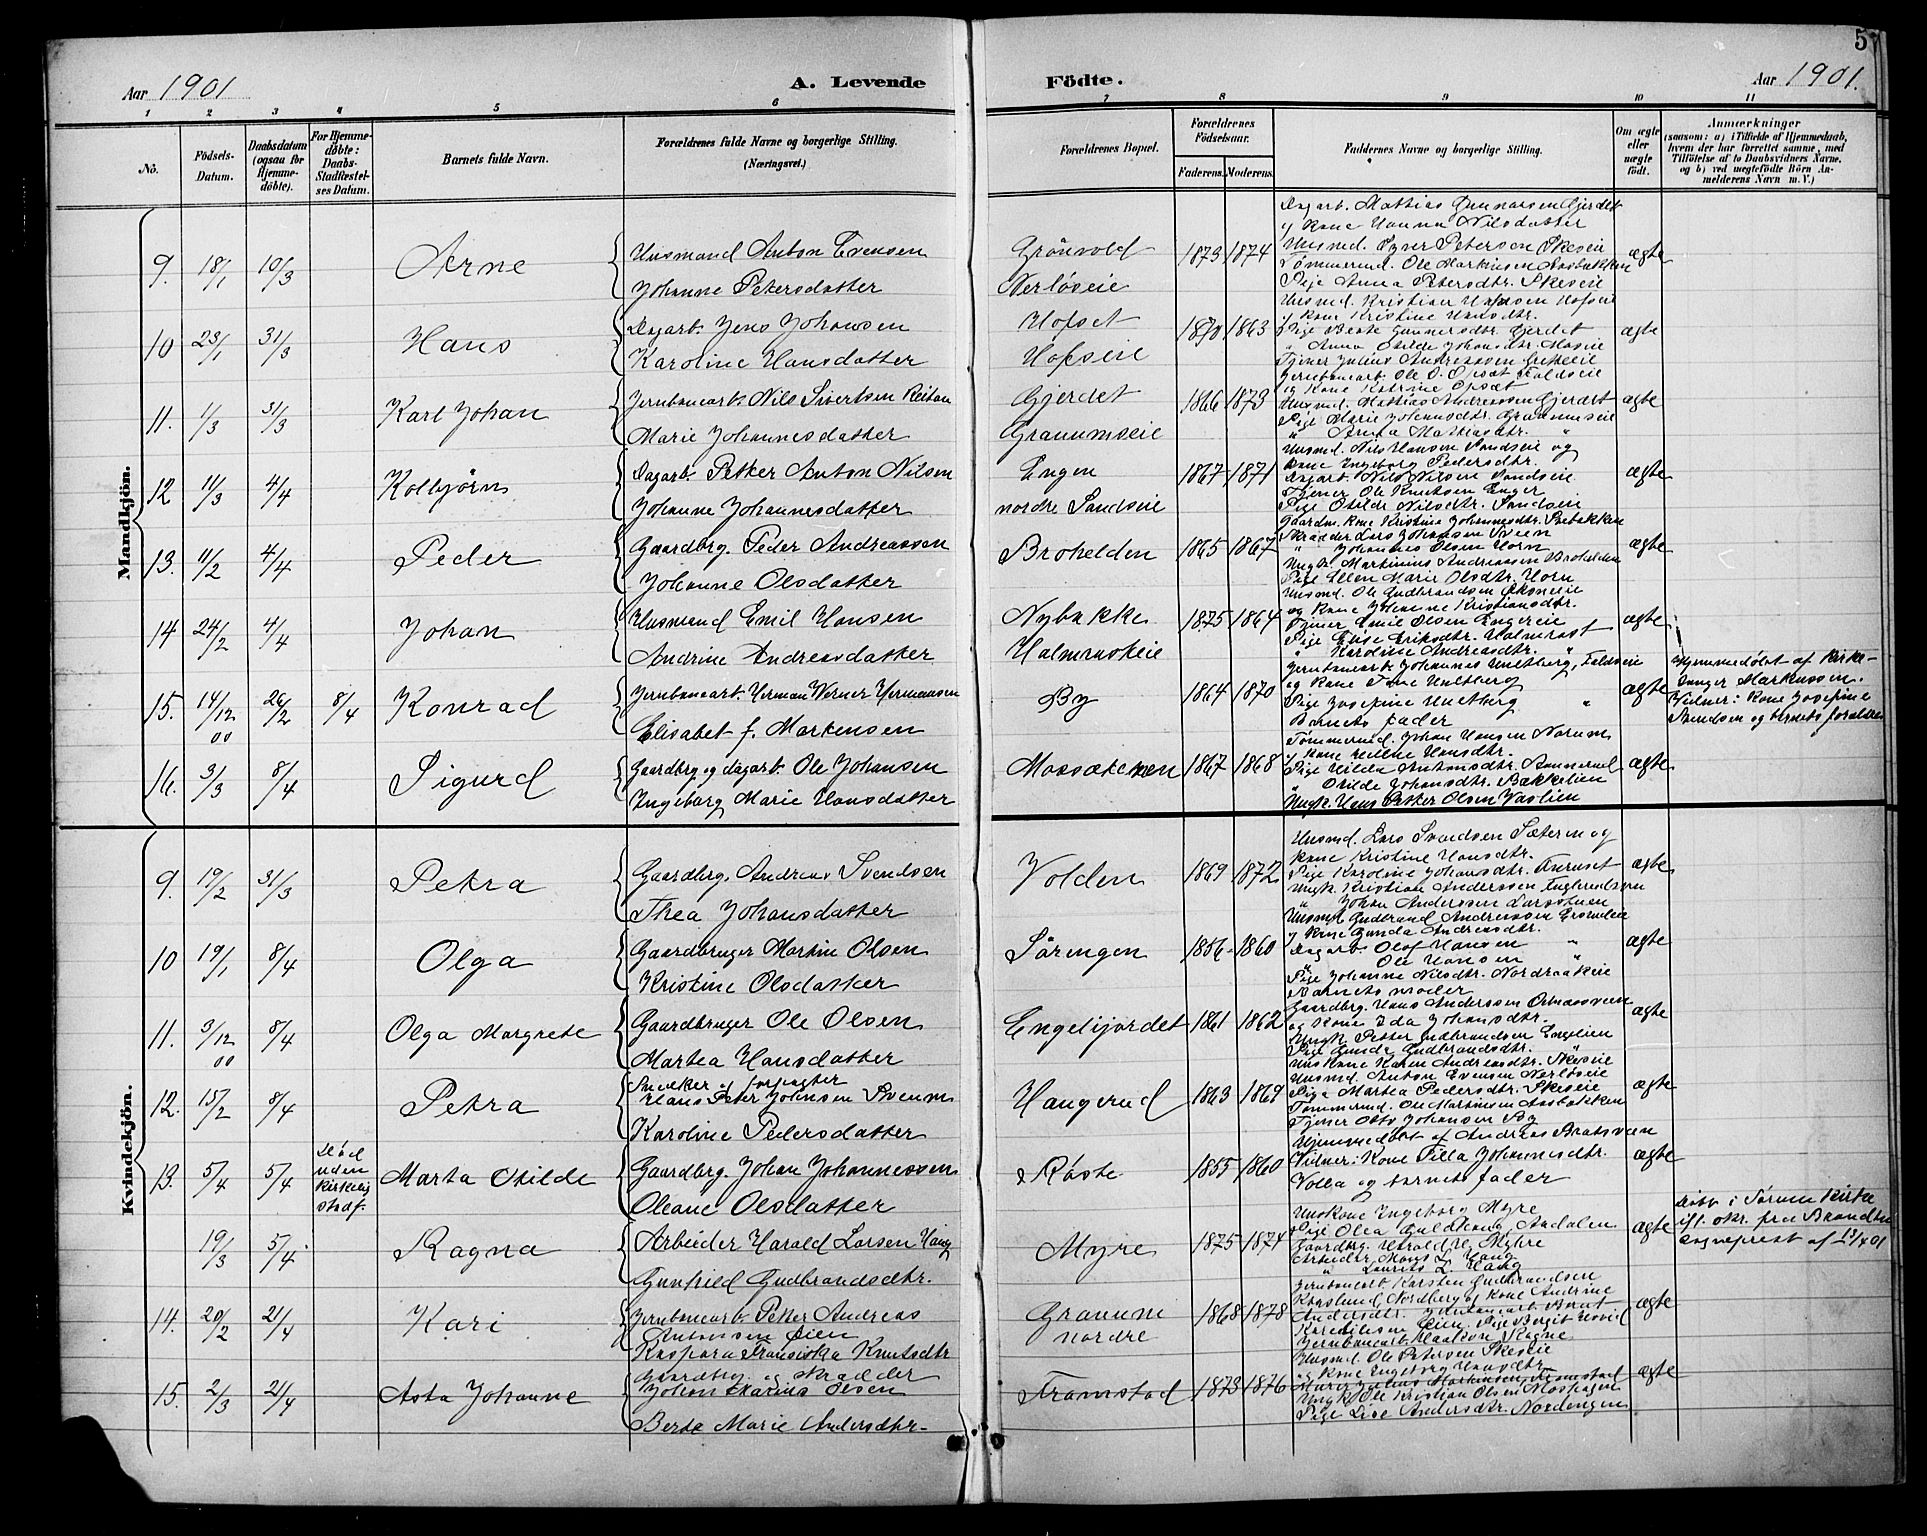 5
Aar 1901
A. Levende Födte.
Aar 1901.
1 2 3 4 5 6 7 8 9 10 11
No.
Födsels-Datum.
Daabsdatum (ogsaa for Hjemmedöbte).
For Hjemmedöbte: Daabs-Stadfæstelses Datum.
Barnets fulde Navn.
Forældrenes fulde Navne og borgerlige Stilling.
(Næringsvei.)
Forældrenes Bopæl.
Forældrenes Födselsaar.
Faderens. Moderens.
Faddernes Navne og borgerlige Stilling.
Om ægte eller uægte födt.
Anmærkninger
(saasom: a) i Tilfælde af Hjemmedaab, hvem der har forrettet samme, med Tilföielse af to Daabsvidners Navne. og b) ved uægtefödte Börn Anmelderens Navn m. V.)
Mandkjön.
9. 18/1 10/3 Arne
Husmand Anton Evensen
Johanne Petersdatter
Grönvold
Nerlöseie
1873 1874
Dagarb. Mattias Gunnarsen Gjerdet
y kone Hanna Nilsdatter
Husmd. Syver Petersen Skeseie
Tömmermd. Ole Martinsen Aasbakken
Pige Anna Petersdtr. Skeseie
ægte
10 23/1 31/3 Hans
Dagarb. Jens Johansen
Karoline Hansdatter
Hofset
Hofseie
1870 1863
Husmd. Kristian Hansen Hofseie
y kone Kristine Hansdtr.
Pige Berte Gunnersdtr. Gjerdet
" Anna Otilde Johansdtr. Moseie
Tjener Julius Andreassen
ægte
11. 1/3 31/3 Karl Johan
Jernbanearb. Nils Sivertsen Reitan
Marie Johannesdatter
Gjerdet
Granumseie
1866 1873
Jernbanearb. Ole O. Opsæt Faldseie
og Kone Katrine Opsæt
Husmd. Mathias Andreassen Gjerdet
Pige Marie Johannsdtr. Granumseie
" Anna Mathiasdtr. "
ægte
12 11/3 4/4 Kolbjörn
Dagarb. Petter Anton Nilsen
Johanne Johannesdatter
Engen
nordre Sandseie
1867 1871
Husmd. Nils Hansen Sandseie og
kone Ingeborg Pedersdtr.
Dagarb. Nils Nilsen Sandseie
Tjener Ole Knutsen Enger
Pige Otilde Nilsdtr. Sandseie
ægte
13. 11/2 4/4 Peder
Gaardbrg. Peder Andreassen
Johanne Olsdatter
Brohelden
1865 1867
Gaardm. kone Kristine Johannesdtr. Bræbakken
Skrædder Lars Johansen Sveen
" Johannes Olsen Horn
Ungk. Martinius Andreassen Brohelden
Pige Ellen Marie Olsdtr. Horn
ægte
14 24/2 4/4 Johan
Husmand Emil Hansen
Andrine Andreasdatter
Nybakke
Halmrasteie
1875 1864
Husmd. Ole Gudbrandsen
og kone Johanne Kristiansdtr.
Tjener Emil Olsen Engereie
Pige Elise Eriksdtr. Halmrast
" Karoline Andreasdtr. "
ægte
15. 14/12 00 26/2 8/4 Konrad
Jernbanearb. Herman Werner Hermansen
Elisabet f. Markensen
By
1864 1870
Jernbanearb. Johannes Hveltberg, Faldseie
og kone Tine Hveltberg
Pige Josefine Hveltberg "
Barnets fader
ægte
Hjemmedöbt af Kirke-
sanger Markussen.
Vidner: Kone Josefine
Svendsen og barnets forældre
16. 3/3 8/4 Sigurd
Gaardbrg og dagarb. Ole Johansen
Ingeborg Marie Hansdatter
Mossætermoen
1867 1868
Tömmermd. Johan Hansen Norum
y kone Helene Hansdtr.
Pige Hilda Antonsdtr. Aamerud
" Otilde Johansdtr. Bækkelien
Ungk. Hans Petter Olsen Vaslien
ægte
Kvindekjön.
9. 19/2 31/3 Petra
Gaardbrg. Andreas Svendsen
Thea Johansdatter
Volden
1869 1872
Husmd. Lars Svendsen Sæteren og
kone Kristine Hansdtr.
Pige Karoline Johansdtr.
Ungk. Kristian Andersen
" Johan Andersen Larsstuen
ægte
10 19/1 8/4 Olga
Gaardbruger Martin Olsen
Kristine Olsdatter
Sörengen
1856 1860
Husmd. Gudbrand Andreassen
y kone Gunda Andreasdtr.
Dagarb. Olof Hansen "
" Ole Hansen "
Pige Johanne Nilsdtr. Nordraakeie
ægte
11. 3/12 00 8/4 Olga Margrete
Gaardbruger Ole Olsen
Martea Hansdatter
Engelijordet
1861 1862
Barnets moder
Gaardbrg. Hans Anderssen
og kone Ida Johansdtr.
Ungk. Petter Gudbrandsen Engelien
Pige Gunda Gudbrandsdtr. "
ægte
12. 15/2 8/4 Petra
Snekker og forpagter
Hans Peter Johnsen Sveum
Karoline Pedersdatter
Haugerud
1863 1869
Huskone Karen Andreasdtr. Skeseie
Husmd. Anton Evensen Nerlöseie
Pige Martea Pedersdtr. Skeseie
Tömmermd. Ole Martinsen Aasbakken
Tjener Otto Johansen By
ægte
13. 5/4 5/4
Död
uden
kirkelig
stadf.
Marta Otilde
Gaardbrg. Johan Johannessen
Oleane Olsdatter
Röste
1855 1860
Hjemmedöbt af Andreas Bratsveen
Vidner: Kone Pilla Johannesdtr.
Volla og barnets fader
ægte
19/3 5/4 Ragna
Arbeider Harald Larsen Haug
Gunhild Gudbrandsdtr.
Myre
1875 1874
Huskone Ingeborg Myre
Pige Olea Andalen
Gaardbrg. Harald Myhre
Arbeider Hans L. Haug
" Laurits L. Haug
ægte
Döbt i Sörum Kirke
ifl. skr. fra Brandbu
sogneprest af 13/4 01
14. 20/2 21/4 Kari
Jernbanearb. Petter Andreas
Antonsen Öien
Kaspara Fransiska Knutsdtr
Granum
nordre
1868 1878
Jernbanearb. Karsten Gudbrandsen
Nordberg og kone Andrine
Andersdtr. Jernbanearb.
ægte
15. 2/3 21/4 Asta Johanne
Gaardbrg. og skrædder
Johan Marius Olsen
Berte Marie Andersdtr.
Framstad
1873 1876
Husmd. Ole Petersen Skeseie
og kone Ingeborg Hansdtr.
Ungk. Ole Kristian Olsen Moshagen
Pige Lise Andersdtr. Nordengen
ægte